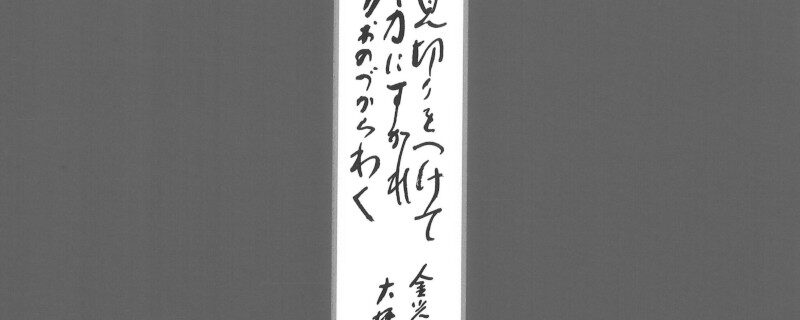 見切りをつけて
力にすがれ
おのづからわく
金
大